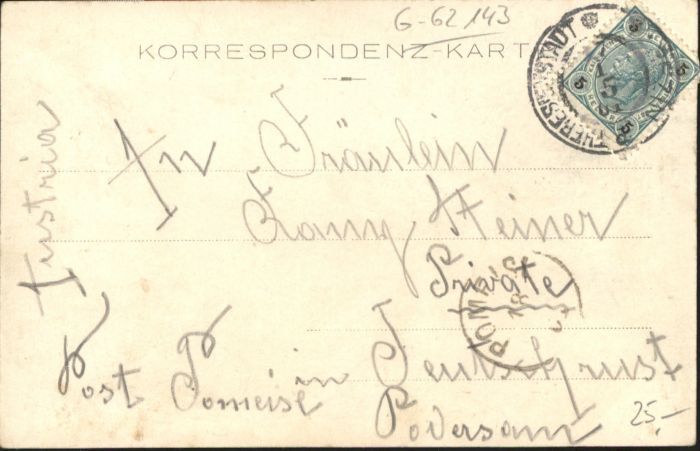 G-62143
KORRESPONDENZ-KART
THERESIENSTADT
5 5 5
Austria
An Fräulein
Fanny Steiner
Private
POMEIS
Post Pomeisl in
Podersam
25,-